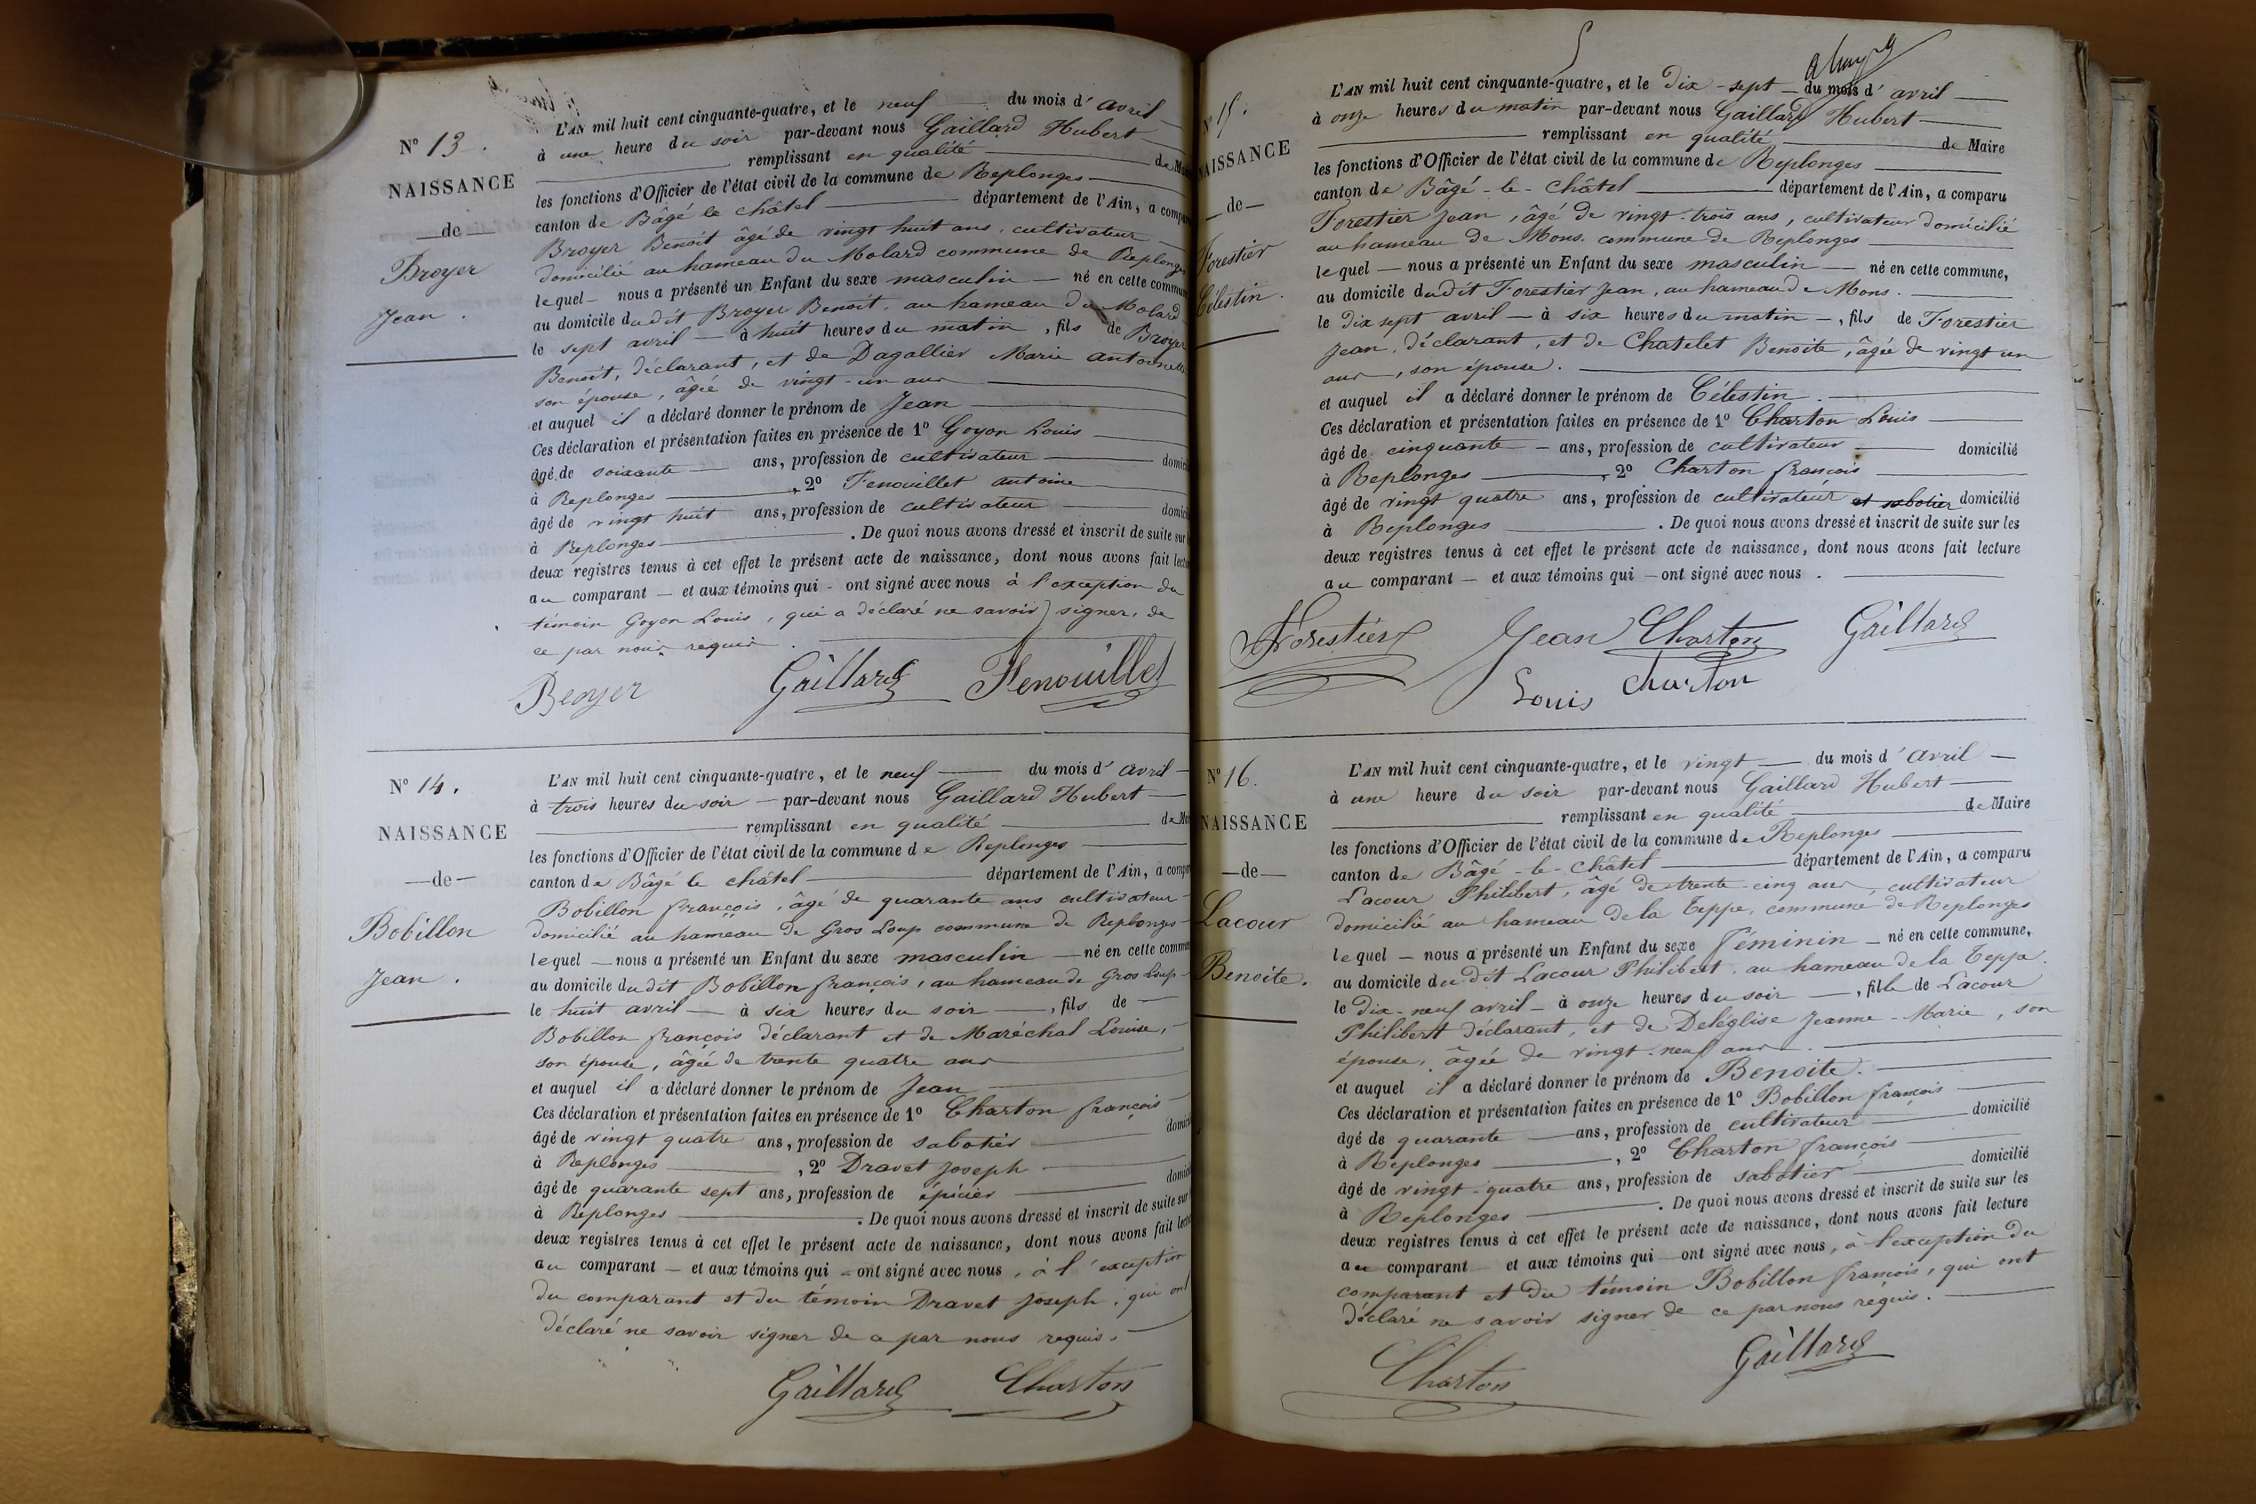 N° 13.
NAISSANCE
de
Broyer
Jean.
L'AN mil huit cent cinquante-quatre, et le neuf du mois d'avril
à une heure du soir par-devant nous Gaillard Hubert
remplissant en qualité de
les fonctions d'Officier de l'état civil de la commune de Replonges
canton de Bâgé le châtel département de l'Ain, a
Broyer Benoit âgé de vingt huit ans, cultivateur
domicilié au hameau du Molard commune de Replonges
lequel nous a présenté un Enfant du sexe masculin né en cette
au domicile dudit Broyer Benoit, au hameau du Molard
le sept avril à huit heures du matin, fils de Broyer
Benoit, déclarant, et de Dagallier Marie antoinette
son épouse, âgée de vingt-un ans
et auquel il a déclaré donner le prénom de Jean
Ces déclaration et présentation faites en présence de 1° Goyon Louis
âgé de soixante ans, profession de cultivateur
à Replonges, 2° Fenouillet antoine
âgé de vingt huit ans, profession de cultivateur
à Replonges. De quoi nous avons dressé et inscrit de suite sur
deux registres tenus à cet effet le présent acte de naissance, dont nous avons fait
au comparant et aux témoins qui ont signé avec nous à l'exception du
témoin Goyon Louis, qui a déclaré ne savoir signer, de
ce par nous requis.
Gaillard Fenouillet
N° 14.
NAISSANCE
de
Bobillon
Jean.
L'AN mil huit cent cinquante-quatre, et le neuf du mois d'avril
à trois heures du soir par-devant nous Gaillard Hubert
remplissant en qualité de
les fonctions d'Officier de l'état civil de la commune de Replonges
canton de Bâgé le châtel département de l'Ain, a
Bobillon françois, âgé de quarante ans cultivateur
domicilié au hameau de Gros Loup commune de Replonges
lequel nous a présenté un Enfant du sexe masculin né en cette
au domicile dudit Bobillon françois, au hameau de Gros Loup
le huit avril à six heures du soir, fils de
Bobillon françois déclarant et de Maréchal Louise,
son épouse, âgée de trente quatre ans
et auquel il a déclaré donner le prénom de Jean
Ces déclaration et présentation faites en présence de 1° Charton françois
âgé de vingt quatre ans, profession de sabotier
à Replonges, 2° Dravet Joseph
âgé de quarante sept ans, profession de épicier
à Replonges. De quoi nous avons dressé et inscrit de suite sur
deux registres tenus à cet effet le présent acte de naissance, dont nous avons fait
au comparant et aux témoins qui ont signé avec nous, à l'exception
du comparant et du témoin Dravet Joseph, qui ont
déclaré ne savoir signer de ce par nous requis.
Gaillard Charton
N° 15.
NAISSANCE
de
Forestier
Célestin.
L'AN mil huit cent cinquante-quatre, et le dix-sept du mois d'avril
à onze heures du matin par-devant nous Gaillard Hubert
remplissant en qualité de Maire
les fonctions d'Officier de l'état civil de la commune de Replonges
canton de Bâgé-le-Châtel département de l'Ain, a comparu
Forestier Jean, âgé de vingt-trois ans, cultivateur domicilié
au hameau de Mons commune de Replonges
lequel nous a présenté un Enfant du sexe masculin né en cette commune,
au domicile dudit Forestier Jean, au hameau de Mons.
le dix sept avril à six heures du matin, fils de Forestier
Jean, déclarant, et de Chatelet Benoite, âgée de vingt un
ans, son épouse.
et auquel il a déclaré donner le prénom de Célestin.
Ces déclaration et présentation faites en présence de 1° Charton Louis
âgé de cinquante ans, profession de cultivateur domicilié
à Replonges, 2° Charton françois
âgé de vingt quatre ans, profession de cultivateur et sabotier domicilié
à Replonges. De quoi nous avons dressé et inscrit de suite sur les
deux registres tenus à cet effet le présent acte de naissance, dont nous avons fait lecture
au comparant et aux témoins qui ont signé avec nous.
Forestier Jean Charton Gaillard
Louis Charton
N° 16.
NAISSANCE
de
Lacour
Benoite.
L'AN mil huit cent cinquante-quatre, et le vingt du mois d'avril
à une heure du soir par-devant nous Gaillard Hubert
remplissant en qualité de Maire
les fonctions d'Officier de l'état civil de la commune de Replonges
canton de Bâgé-le-Châtel département de l'Ain, a comparu
Lacour Philibert, âgé de trente-cinq ans, cultivateur
domicilié au hameau de la Teppe, commune de Replonges
lequel nous a présenté un Enfant du sexe féminin né en cette commune,
au domicile du dit Lacour Philibert, au hameau de la Teppe.
le dix-neuf avril à onze heures du soir, fille de Lacour
Philibert déclarant, et de Deléglise Jeanne-Marie, son
épouse, âgée de vingt-neuf ans.
et auquel il a déclaré donner le prénom de Benoite.
Ces déclaration et présentation faites en présence de 1° Bobillon françois
âgé de quarante ans, profession de cultivateur domicilié
à Replonges, 2° Charton françois
âgé de vingt-quatre ans, profession de sabotier domicilié
à Replonges. De quoi nous avons dressé et inscrit de suite sur les
deux registres tenus à cet effet le présent acte de naissance, dont nous avons fait lecture
au comparant et aux témoins qui ont signé avec nous, à l'exception du
comparant et du témoin Bobillon françois, qui ont
déclaré ne savoir signer de ce par nous requis.
Charton Gaillard